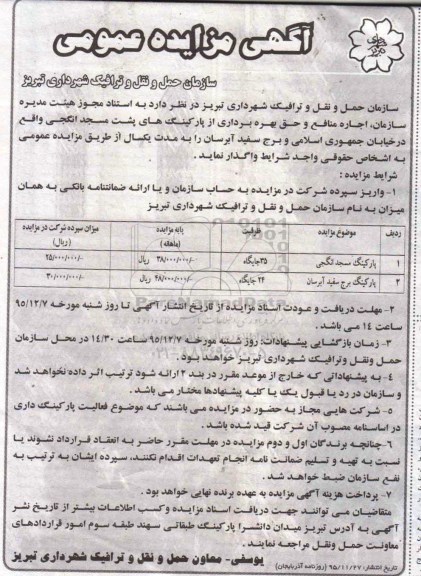 آگهی مزایده عمومی
سازمان حمل و نقل و ترافیک شهرداری تبریز
سازمان حمل و نقل و ترافیک شهرداری تبریز در نظر دارد به استناد مجوز هیئت مدیره
سازمان، اجاره منافع و حق بهره برداری از پارکینگ های پشت مسجد انگجی واقع
در خیابان جمهوری اسلامی و برج سفید آبرسان را به مدت یکسال از طریق مزایده عمومی
به اشخاص حقوقی واجد شرایط واگذار نماید.
شرایط مزایده :
۱- واریز سپرده شرکت در مزایده به حساب سازمان و یا ارائه ضمانتنامه بانکی به همان
میزان به نام سازمان حمل و نقل و ترافیک شهرداری تبریز
ردیف موضوع مزایده ظرفیت پایه مزایده (ماهانه) میزان سپرده شرکت در مزایده (ریال)
۱ پارکینگ مسجد انگجی ۳۵جایگاه ۳۸/۰۰۰/۰۰۰/- ریال ۲۵/۰۰۰/۰۰۰/-
۲ پارکینگ برج سفید آبرسان ۲۴ جایگاه ۴۸/۰۰۰/۰۰۰/- ریال ۳۰/۰۰۰/۰۰۰/-
۲- مهلت دریافت و عودت اسناد مزایده از تاریخ انتشار آگهی تا روز شنبه مورخه ۹۵/۱۲/۷
ساعت ۱۴ می باشد.
۳- زمان بازگشایی پیشنهادات: روز شنبه مورخه ۹۵/۱۲/۷ ساعت ۱۴/۳۰ در محل سازمان
حمل ونقل وترافیک شهرداری تبریز خواهد بود.
۴- به پیشنهاداتی که خارج از موعد مقرر در بند ۲ ارائه شود ترتیب اثر داده نخواهد شد
و سازمان در رد یا قبول یک یا کلیه پیشنهادها مختار می باشد.
۵- شرکت هایی مجاز به حضور در مزایده می باشند که موضوع فعالیت پارکینگ داری
در اساسنامه مصوب آن شرکت قید شده باشد.
۶- چنانچه برندگان اول و دوم مزایده در مهلت مقرر حاضر به انعقاد قرارداد نشوند یا
نسبت به تهیه و تسلیم ضمانت نامه انجام تعهدات اقدام نکنند، سپرده ایشان به ترتیب به
نفع سازمان ضبط خواهد شد.
۷- پرداخت هزینه آگهی مزایده به عهده برنده نهایی خواهد بود.
متقاضیان می توانند جهت دریافت اسناد مزایده وکسب اطلاعات بیشتر از تاریخ نشر
آگهی به آدرس تبریز میدان دانشسرا پارکینگ طبقاتی سهند طبقه سوم امور قراردادهای
معاونت حمل ونقل مراجعه نمایند.
یوسفی- معاون حمل و نقل و ترافیک شهرداری تبریز
تاریخ انتشار: ۹۵/۱۱/۲۷ (روزنامه آذربایجان)